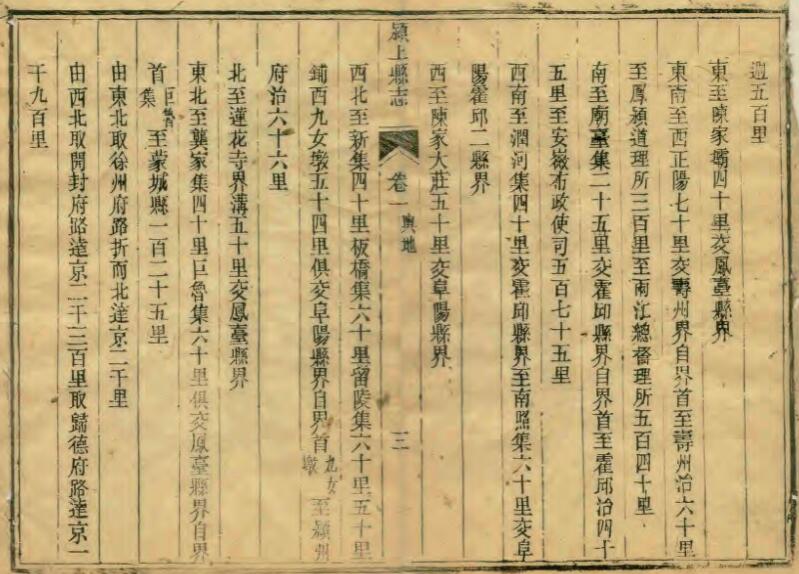 週五百里
東至陳家壩四十里交鳳臺縣界
東南至西正陽七十里交壽州界自界首至壽州治六十里
至鳳潁道理所三百里至兩江總督理所五百四十里
南至廟臺集二十五里交霍邱縣界自界首至霍邱治四十
五里至安徽布政使司五百七十五里
西南至潤河集四十里交霍邱縣界至南照集六十里交阜
陽霍邱二縣界
西至陳家大莊五十里交阜陽縣界
潁上縣志
卷一
輿地
三
西北至新集四十里板橋集六十里留陵集六十里五十里
鋪西九女墩五十四里俱交阜陽縣界自界首九女墩至潁州
府治六十六里
北至蓮花寺界溝五十里交鳳臺縣界
東北至龔家集四十里巨魯集六十里俱交鳳臺縣界自界
首巨魯集至蒙城縣一百二十五里
由東北取徐州府路折而北達京二千里
由西北取開封府路達京二千三百里取歸德府路達京一
千九百里